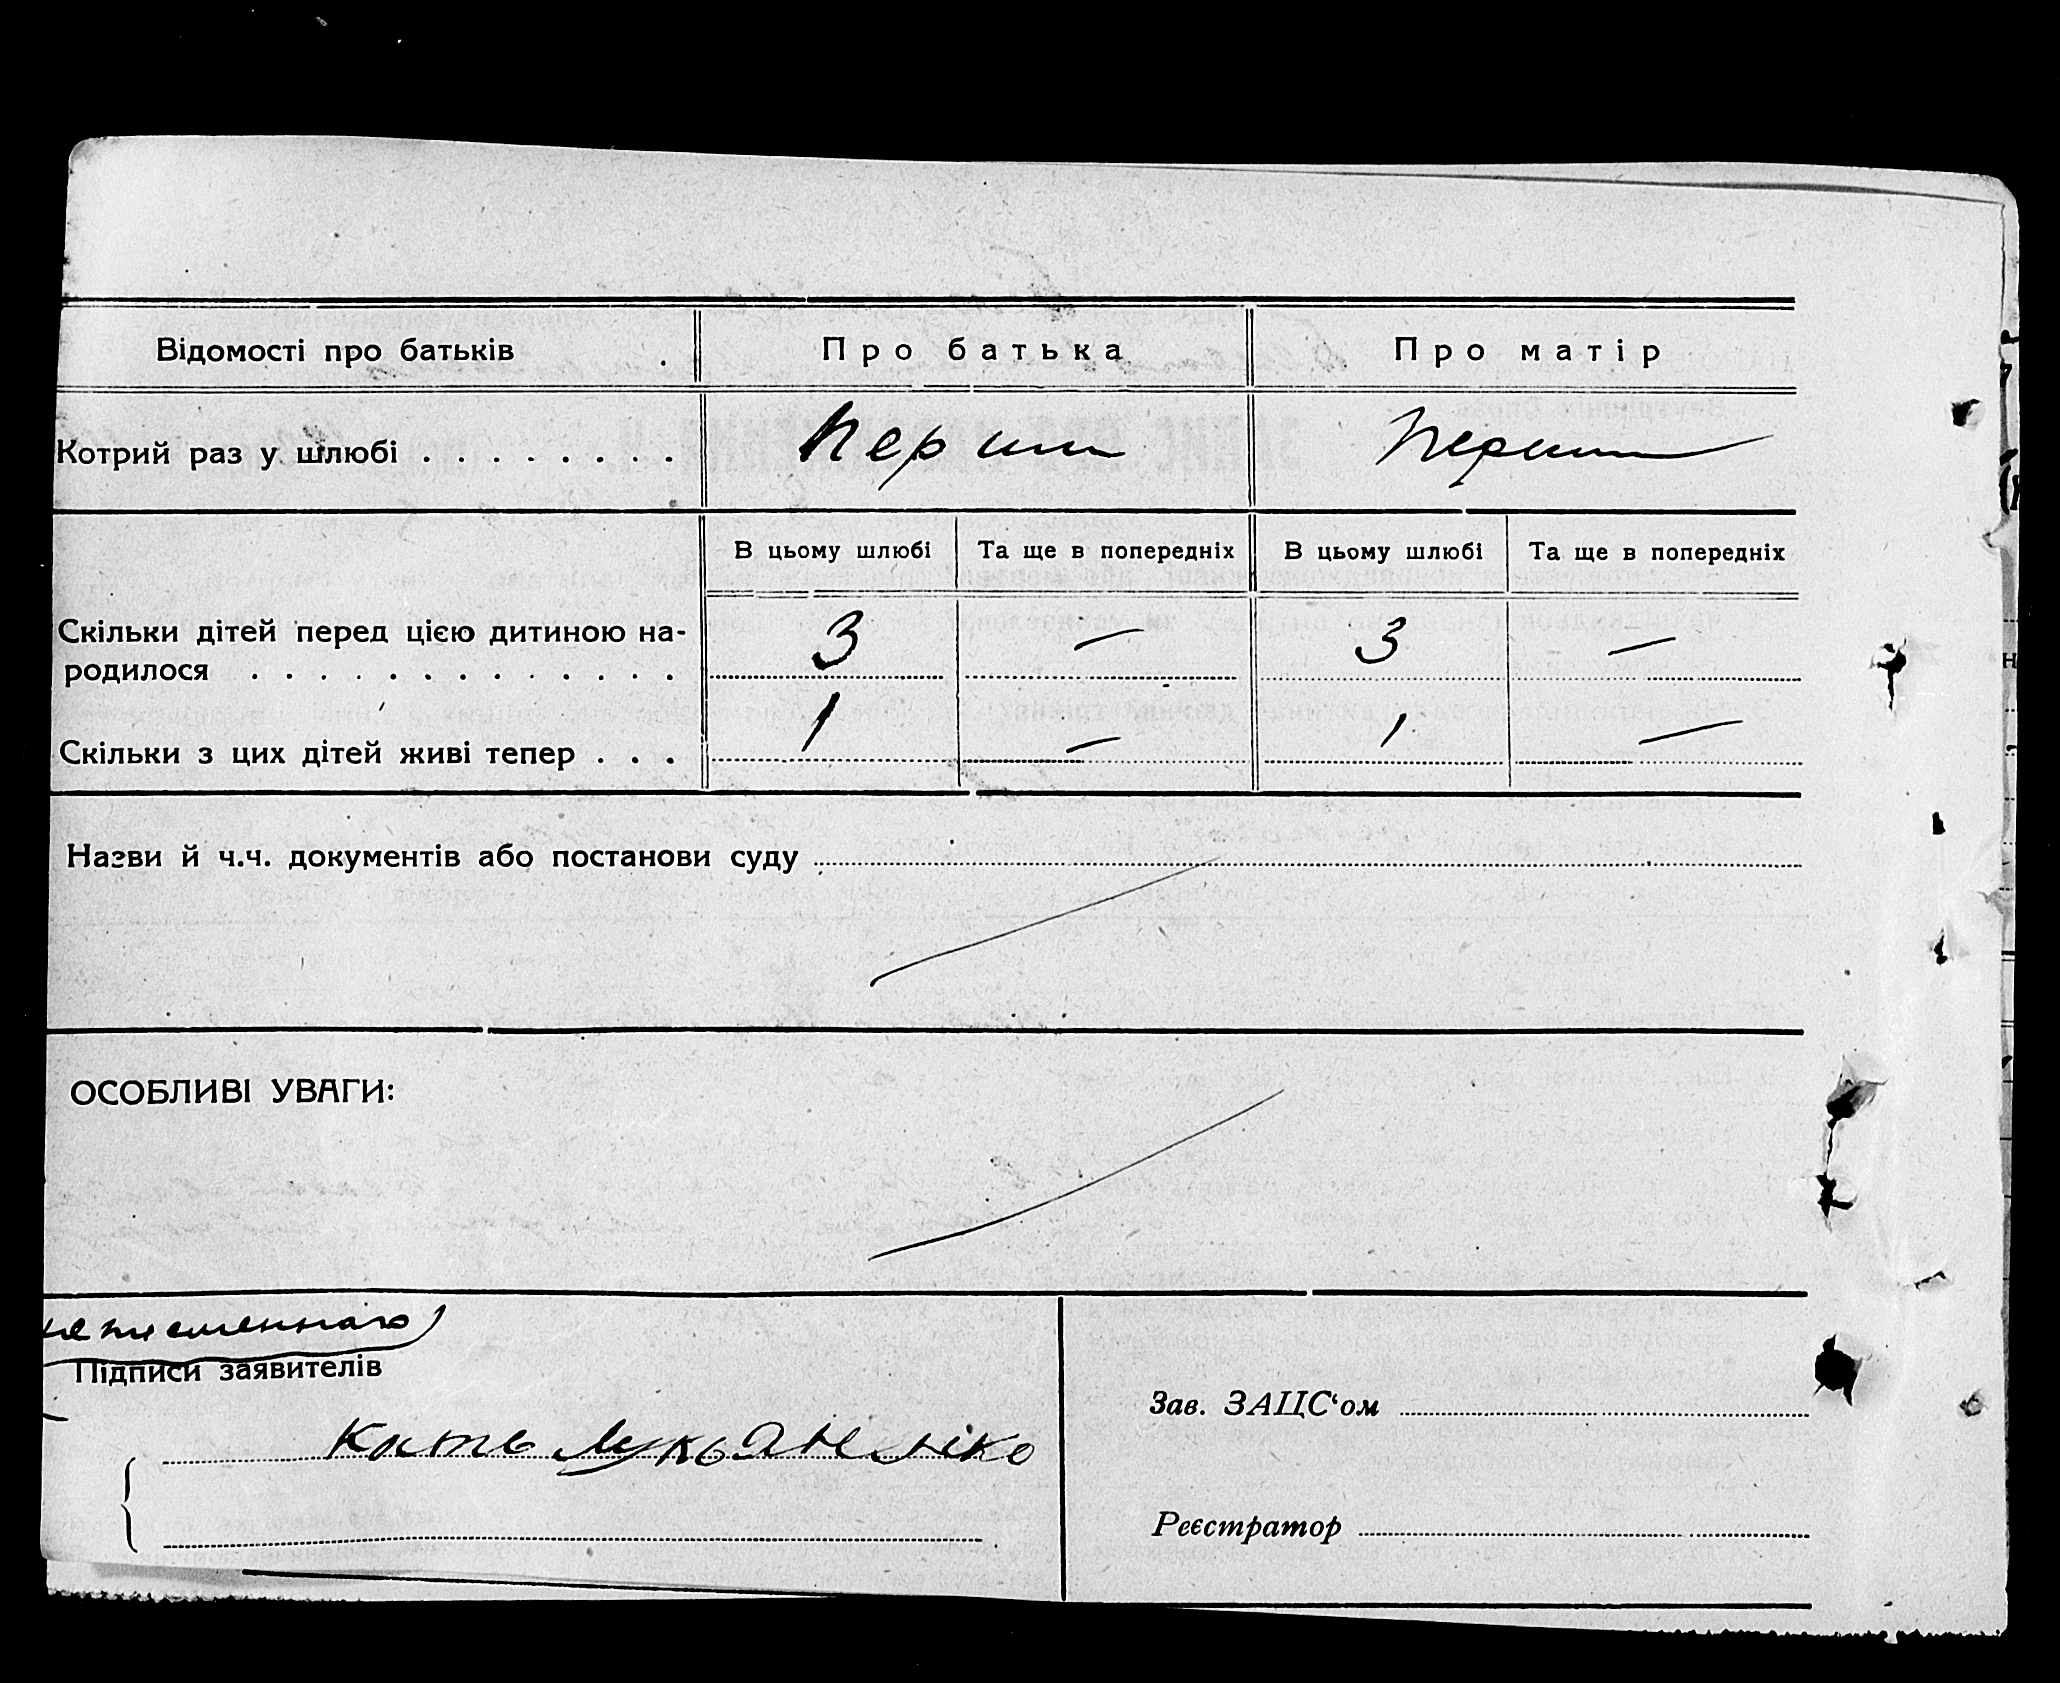 Відомості про батьків . Про батька Про матір
Котрий раз у шлюбі . . . . . . . . Перши Перши
В цьому шлюбі Та ще в попередніх В цьому шлюбі Та ще в попередніх
Скільки дітей перед цією дитиною на-
родилося . . . . . . . . . . . . . 3 — 3 —
Скільки з цих дітей живі тепер . . . 1 — 1 —
Назви й ч.ч. документів або постанови суду
ОСОБЛИВІ УВАГИ:
неписменного
Підписи заявителів
Зав. ЗАЦС‘ом
Реєстратор